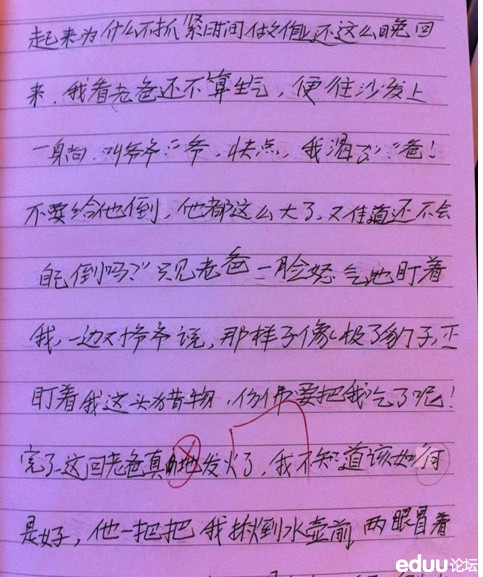 起来为什么不抓紧时间做作业,还这么晚回
来,我看老爸还不算生气,便往沙发上
一身向,叫爷爷:"爷,快点,我渴了""爸!
不要给他倒,他都这么大了,又佳道还不会
自己倒吗?"只见老爸一脸怒气地盯着
我,一边对爷爷说,那样子像极了豹子,正
盯着我这头猎物,仿佛要把我吃了呢!
完了,这回老爸真的发火了,我不知道该如何
是好,他一把把我揪到水壶前,两眼冒着
eduu论坛